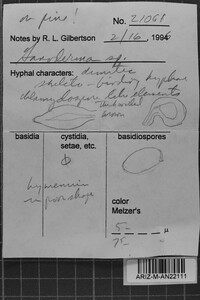 on pine!
No. 21068
Notes by R. L. Gilbertson 2/16 1996
Ganoderma sp.
Hyphal characters: dimitic
skeleto-binding hyphae
chlamydospore like elements
thick walled
brown
basidia
cystidia, setae, etc.
basidiospores
hymenium
in poor shape
color
Melzer's
5-
μ
75
ARIZ-M-AN22111